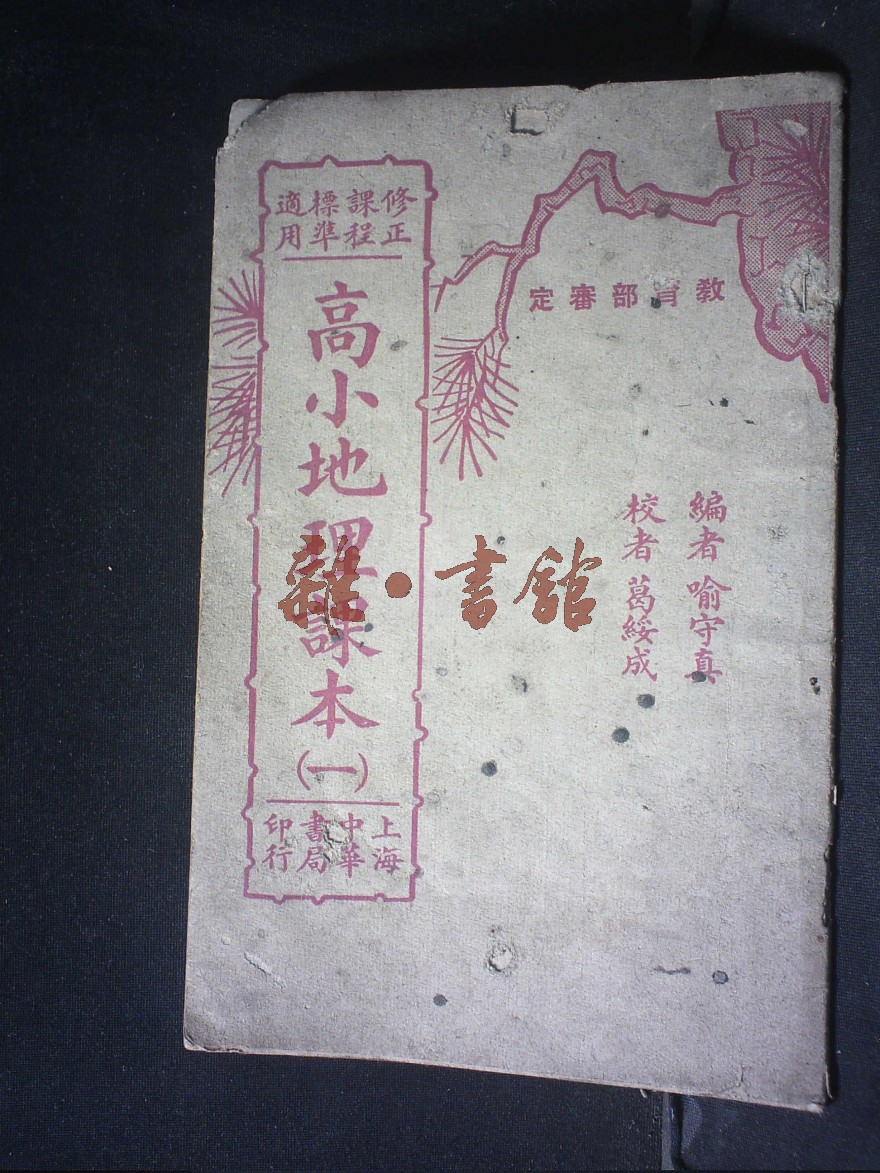 教育部審定
編者 喻守真
校者 葛綏成
修正課程標準適用
高小地理課本(一)
上海中華書局印行
雜·書館